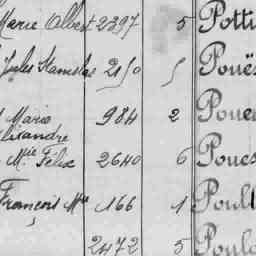 Marie Albert 2397 5 Potti
Jules Stanislas 2150 5 Pouës
Mario 984 2 Poue
lixandre
Mie Felix 2640 6 Poues
François Mie 166 1 Poull
2472 5 Poulo